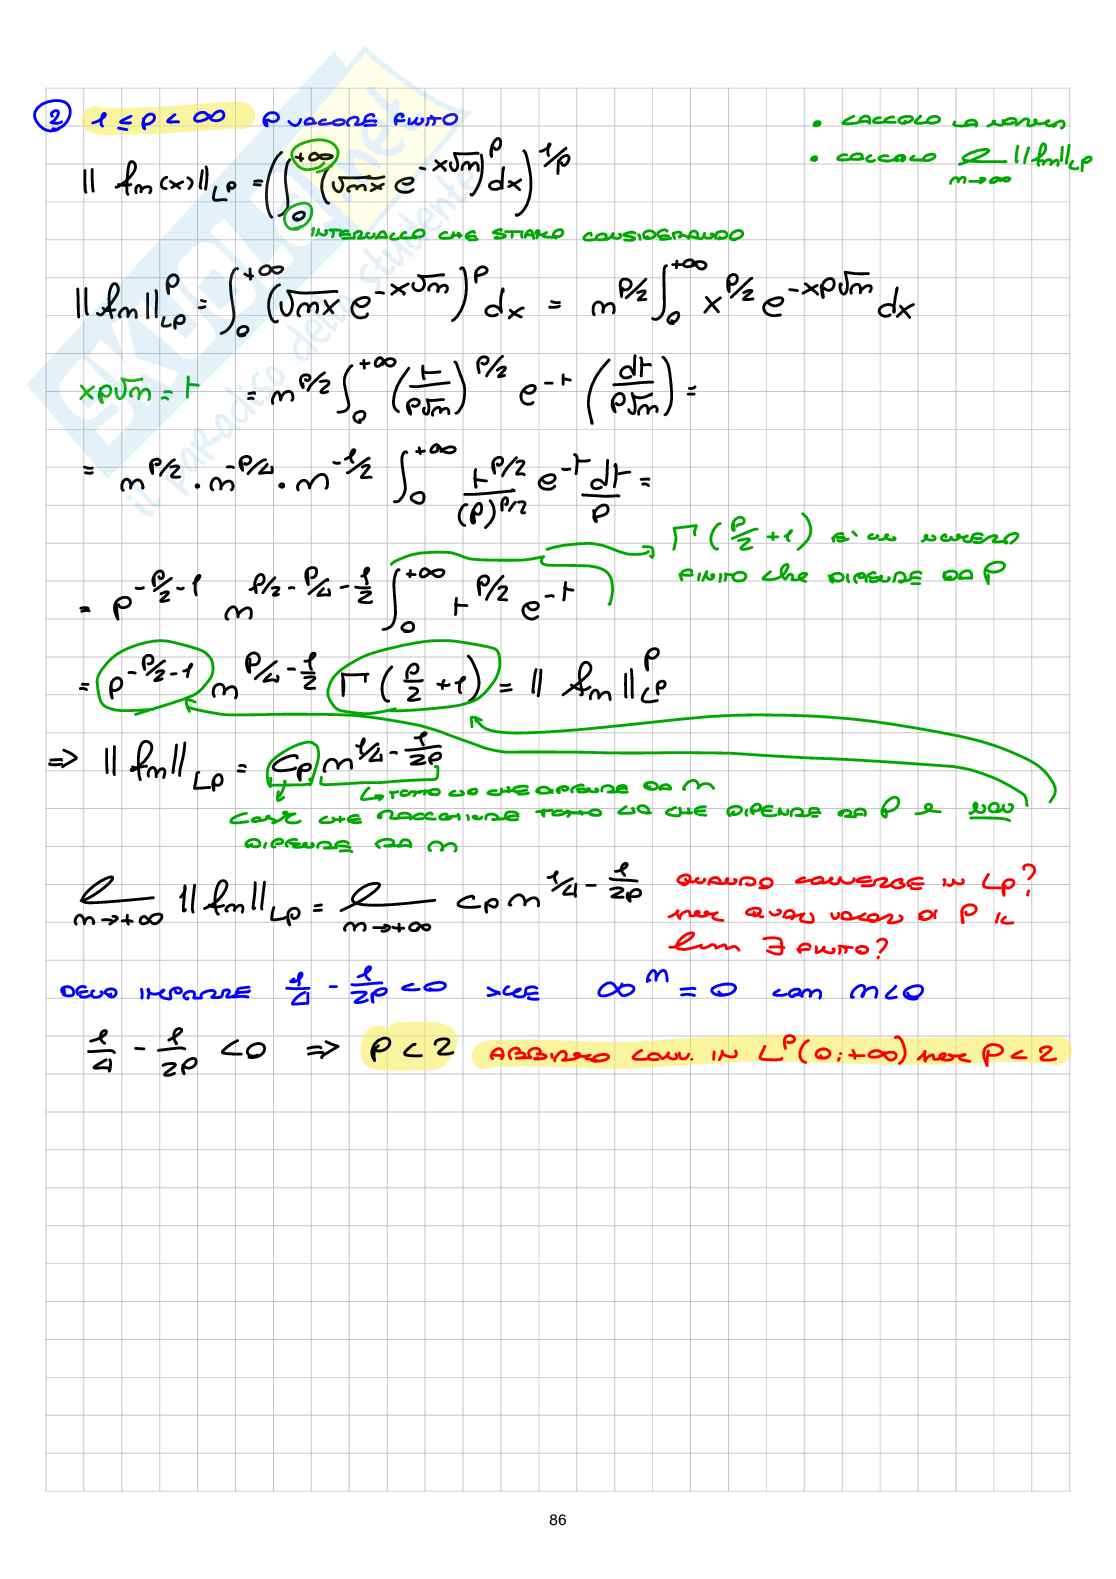 ② 1 ≤ p < ∞ P VALORE FINITO
• CALCOLO LA NORMA
• CALCOLO lim_{n→∞} ||fn||_{Lp}
|| fn(x) ||_{Lp} = ( ∫_0^{+∞} ( √nx e^{-x√n} )^p dx )^{1/p}
INTERVALLO CHE STIAMO CONSIDERANDO
|| fn ||_{Lp}^p = ∫_0^{+∞} ( √nx e^{-x√n} )^p dx = n^{p/2} ∫_0^{+∞} x^{p/2} e^{-xp√n} dx
xp√n = t = n^{p/2} ∫_0^{+∞} ( t / p√n )^{p/2} e^{-t} ( dt / p√n ) =
= n^{p/2} · n^{-p/4} · n^{-1/2} ∫_0^{+∞} t^{p/2} / (p)^{p/2} e^{-t} dt / p =
Γ ( p/2 + 1 ) E' UN NUMERO
FINITO che DIPENDE DA P
= p^{-p/2 - 1} n^{p/2 - p/4 - 1/2} ∫_0^{+∞} t^{p/2} e^{-t}
= p^{-p/2 - 1} n^{p/4 - 1/2} Γ ( p/2 + 1 ) = || fn ||_{Lp}^p
=> || fn ||_{Lp} = Cp n^{1/4 - 1/2p}
↳ TUTTO CIO CHE DIPENDE DA n
COST CHE RACCHIUDE TUTTO CIO CHE DIPENDE DA P e NON
DIPENDE DA n
lim_{n→+∞} || fn ||_{Lp} = lim_{n→+∞} Cp n^{1/4 - 1/2p}
QUANDO CONVERGE IN Lp?
per QUALI VALORI DI P IL
lim ∃ FINITO?
DEVO IMPORRE 1/4 - 1/2p < 0 >CHE ∞^n = 0 con n < 0
1/4 - 1/2p < 0 => P < 2 ABBIAMO CONV. IN L^p (0; +∞) per P < 2
86
SKUOLA.net
il paradiso dello studente